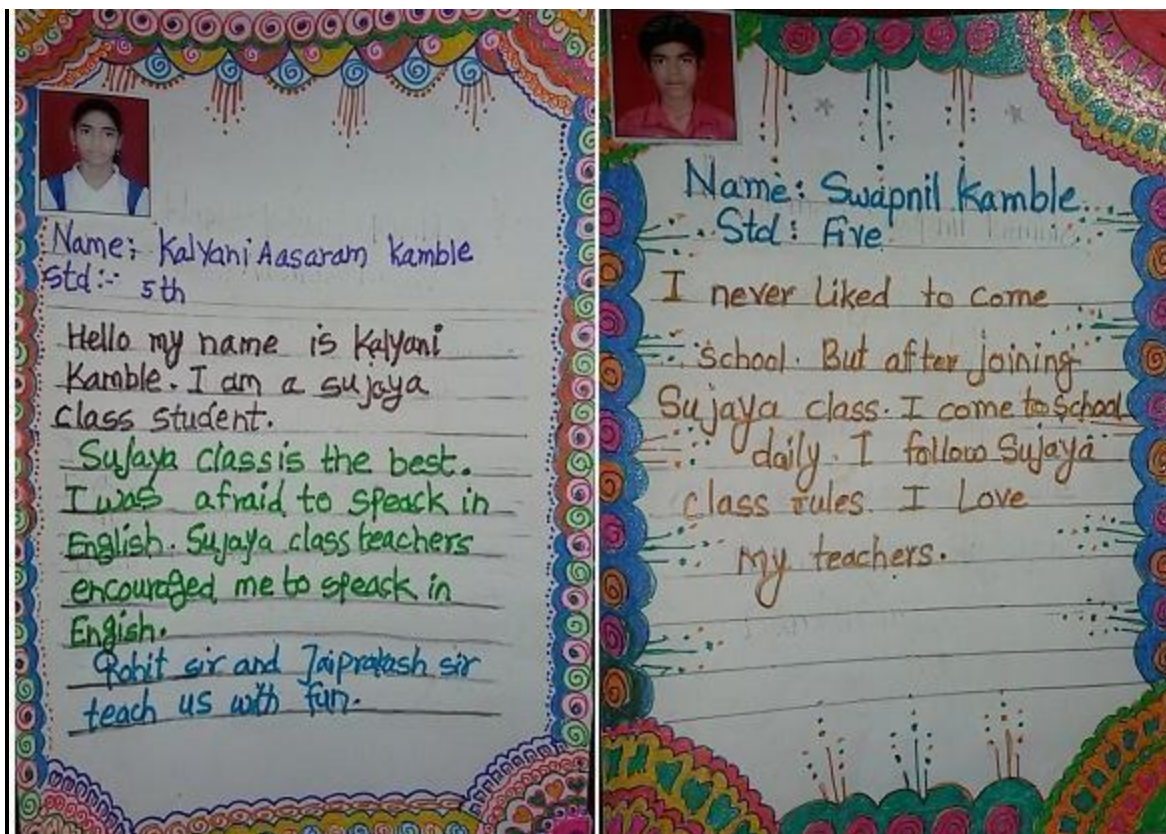 Name: Kalyani Aasaram Kamble
Std:- 5th
Hello my name is Kalyani
Kamble. I am a sujaya
class student.
Sujaya class is the best.
I was afraid to speack in
English. Sujaya class teachers
encouraged me to speack in
Engish.
Rohit sir and Jaiprakash sir
teach us with fun.
Name: Swapnil Kamble
Std: Five
I never liked to come
school. But after joining
Sujaya class. I come to school
daily. I follow Sujaya
class rules. I Love
my teachers.